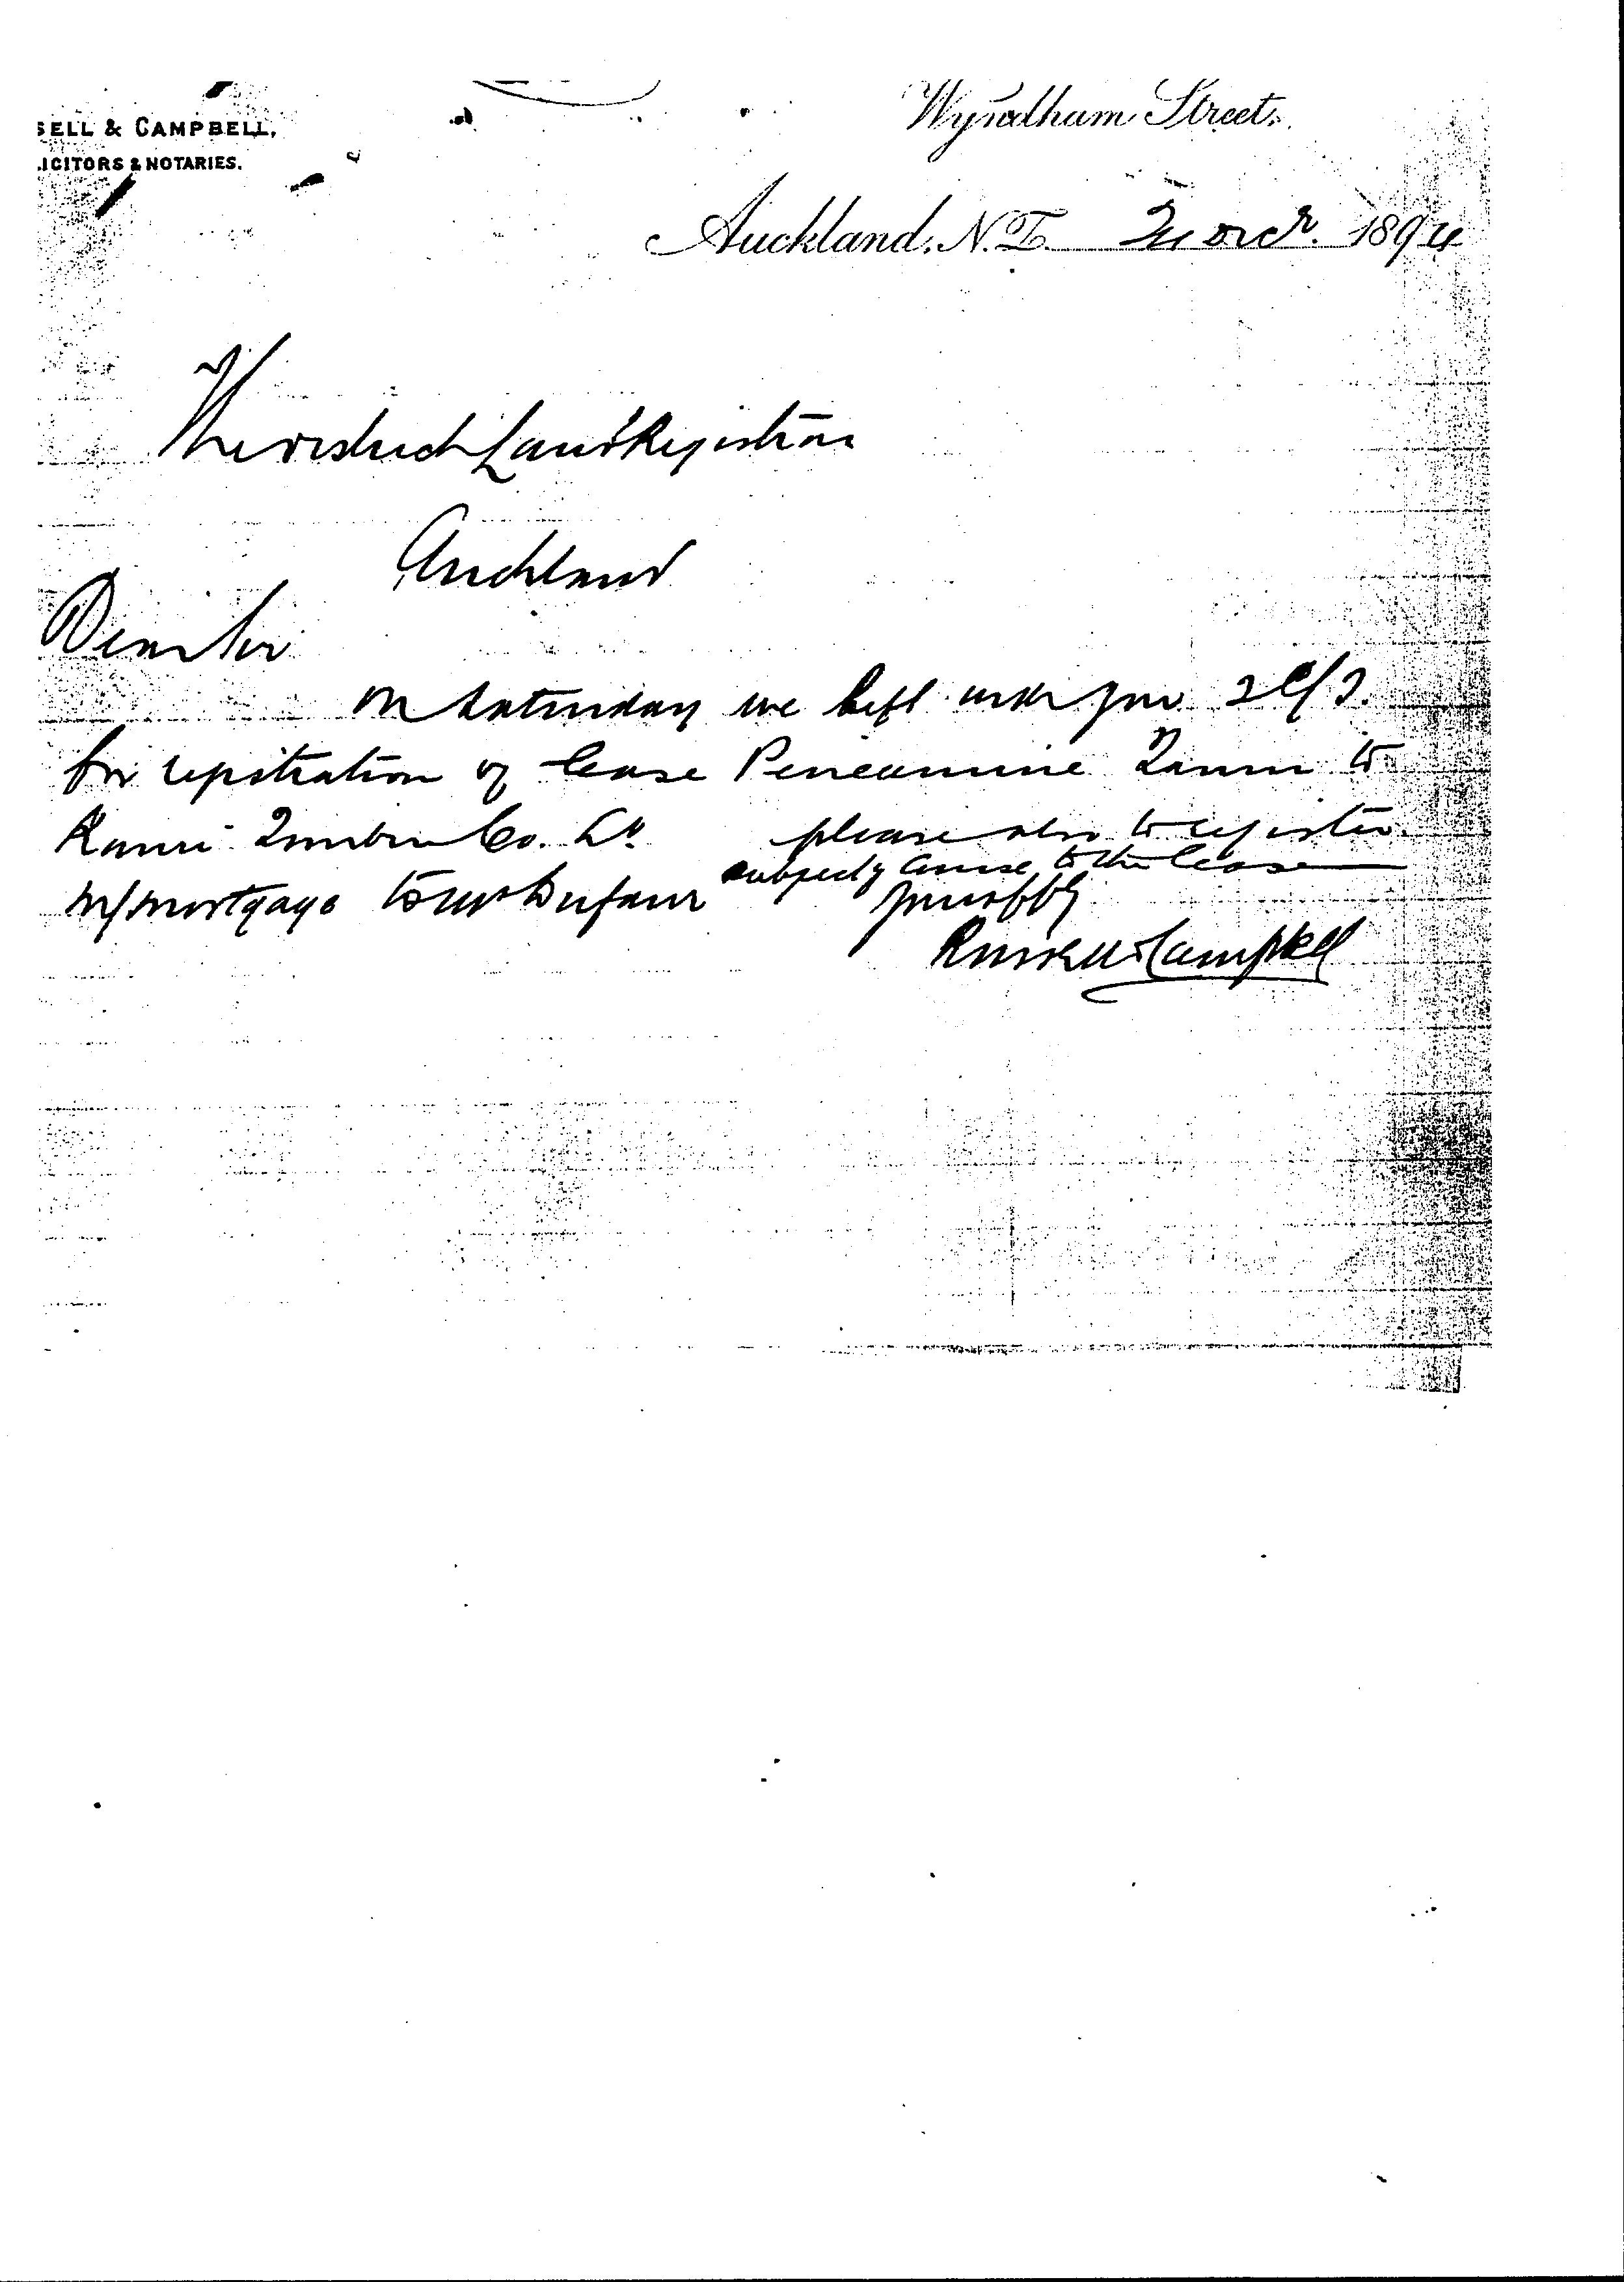 SELL & CAMPBELL,
ICITORS & NOTARIES.
Wyndham Street,
Auckland, N.Z. 2 Octr. 1894
The District Land Registrar
Auckland
Dear Sir
On Saturday we left with you
for registration of lease to
Kauri Timber Co. Ld please also to register
subject of course to the lease
mortgage to Mr Dufaur
Yours ffly
Russell & Campbell